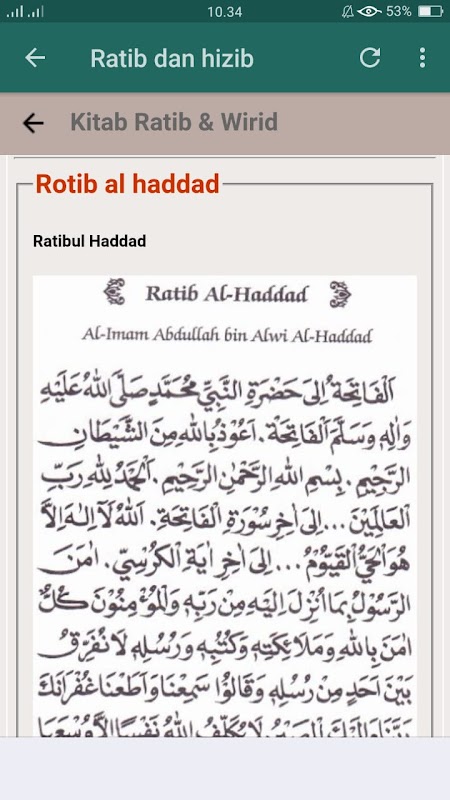 10.34
53%
Ratib dan hizib
Kitab Ratib & Wirid
Rotib al haddad
Ratibul Haddad
Ratib Al-Haddad
Al-Imam Abdullah bin Alwi Al-Haddad
اَلْفَاتِحَةُ اِلَى حَضْرَةِ النَّبِيِّ مُحَمَّدٍ صَلَّى اللهُ عَلَيْهِ
وَاٰلِهِ وَسَلَّمَ اَلْفَاتِحَةُ. اَعُوْذُ بِاللهِ مِنَ الشَّيْطَانِ
الرَّجِيْمِ. بِسْمِ اللهِ الرَّحْمٰنِ الرَّحِيْمِ. اَلْحَمْدُ لِلهِ رَبِّ
الْعَالَمِيْنَ... اِلَى اٰخِرِ سُوْرَةِ الْفَاتِحَةِ. اَللهُ لَآ اِلٰهَ اِلَّا
هُوَ الْحَيُّ الْقَيُّوْمُ... اِلَى اٰخِرِ اٰيَةِ الْكُرْسِيِّ. اٰمَنَ
الرَّسُوْلُ بِمَا اُنْزِلَ اِلَيْهِ مِنْ رَبِّهِ وَالْمُؤْمِنُوْنَ كُلٌّ
اٰمَنَ بِاللهِ وَمَلَائِكَتِهِ وَكُتُبِهِ وَرُسُلِهِ لَا نُفَرِّقُ
بَيْنَ اَحَدٍ مِنْ رُسُلِهِ وَقَالُوْا سَمِعْنَا وَاَطَعْنَا غُفْرَانَكَ
رَبَّنَا وَاِلَيْكَ الْمَصِيْرُ لَا يُكَلِّفُ اللهُ نَفْسًا اِلَّا وُسْعَهَا